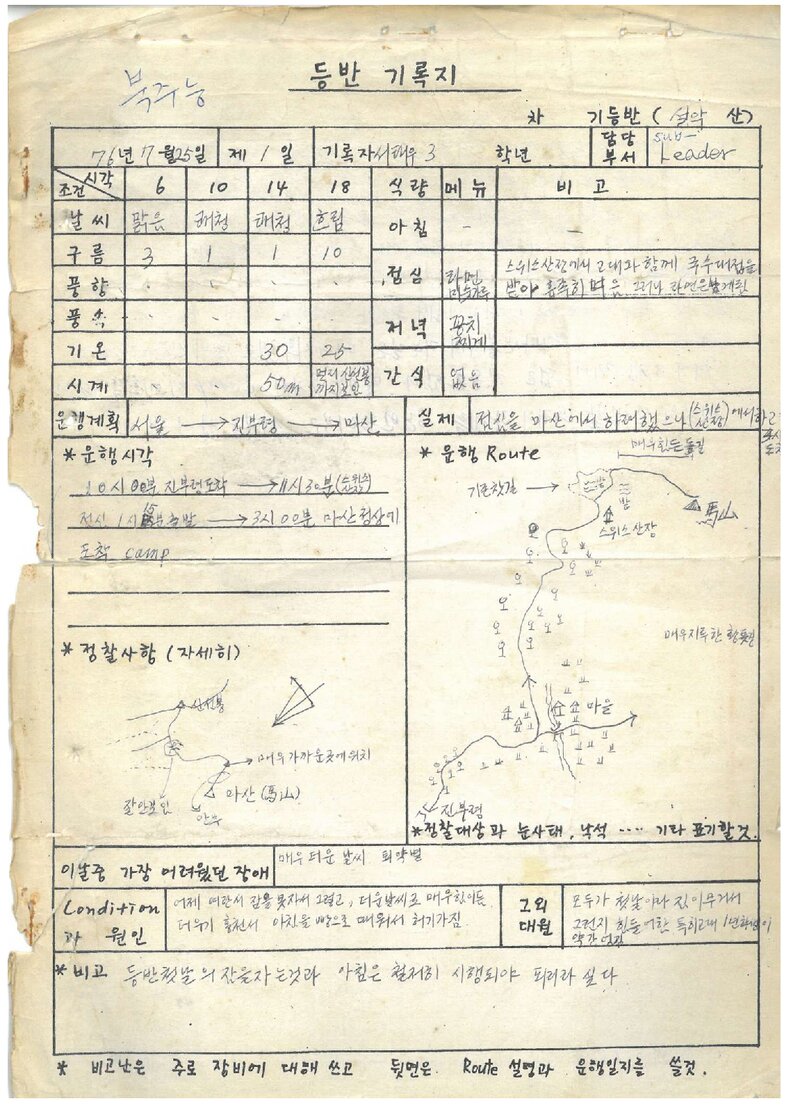 등반 기록지
북주능
차 기등반 (설악 산)
76년 7월 25일 제 1 일 기록자 서태우 3 학년 담당부서 sub-Leader
조건 시각 6 10 14 18 식량 메뉴 비고
날씨 맑음 쾌청 쾌청 흐림 아침 - -
구름 3 1 1 10
풍향 - - - - 점심 라면 미숫가루 스위스산장에서 고대와 함께 국수대접을
받아 흡족히 먹음 그러나 라면은
풍속 - - - - 저녁 꽁치찌개
기온 - - 30 25
시계 - - 50m 멀리 신선봉까지 보임 간식 없음
운행계획 서울 → 진부령 → 마산
실제 점심을 마산에서 하려했으나 (스위스산장)에서 하고
* 운행시각
10시 00분 진부령도착 → 11시 30분 (스위스산장)
점심 1시 15분 출발 → 3시 00분 마산정상에
도착 camp
* 운행 Route
매우 힘든 돌길
기존찻길 →
밭
밭
馬山
스위스산장
매우 지루한 황톳길
마을
진부령
* 정찰대상과 눈사태, 낙석 ···· 기타 표기할것.
* 정찰사항 (자세히)
신선봉
매우 가까운 곳에 위치
마산 (馬山)
잘안보임
안부
이날중 가장 어려웠던 장애 매우 더운 날씨 뙤약볕
Condition과 원인
어제 야간서 잠을 못자서 그렇고, 더운날씨로 매우 힘이듬
더우기 홍천서 아침을 빵으로 때워서 허기가짐
그외 대원
모두가 첫날이라 짐이 무거워서
그런지 힘들어함 특히 고대 1년
약간 쳐짐
* 비고 등반첫날의 잠을자는것과 아침은 철저히 시행되야 되리라 싶다
* 비고난은 주로 장비에 대해 쓰고 뒷면은 Route 설명과 운행일지를 쓸것.